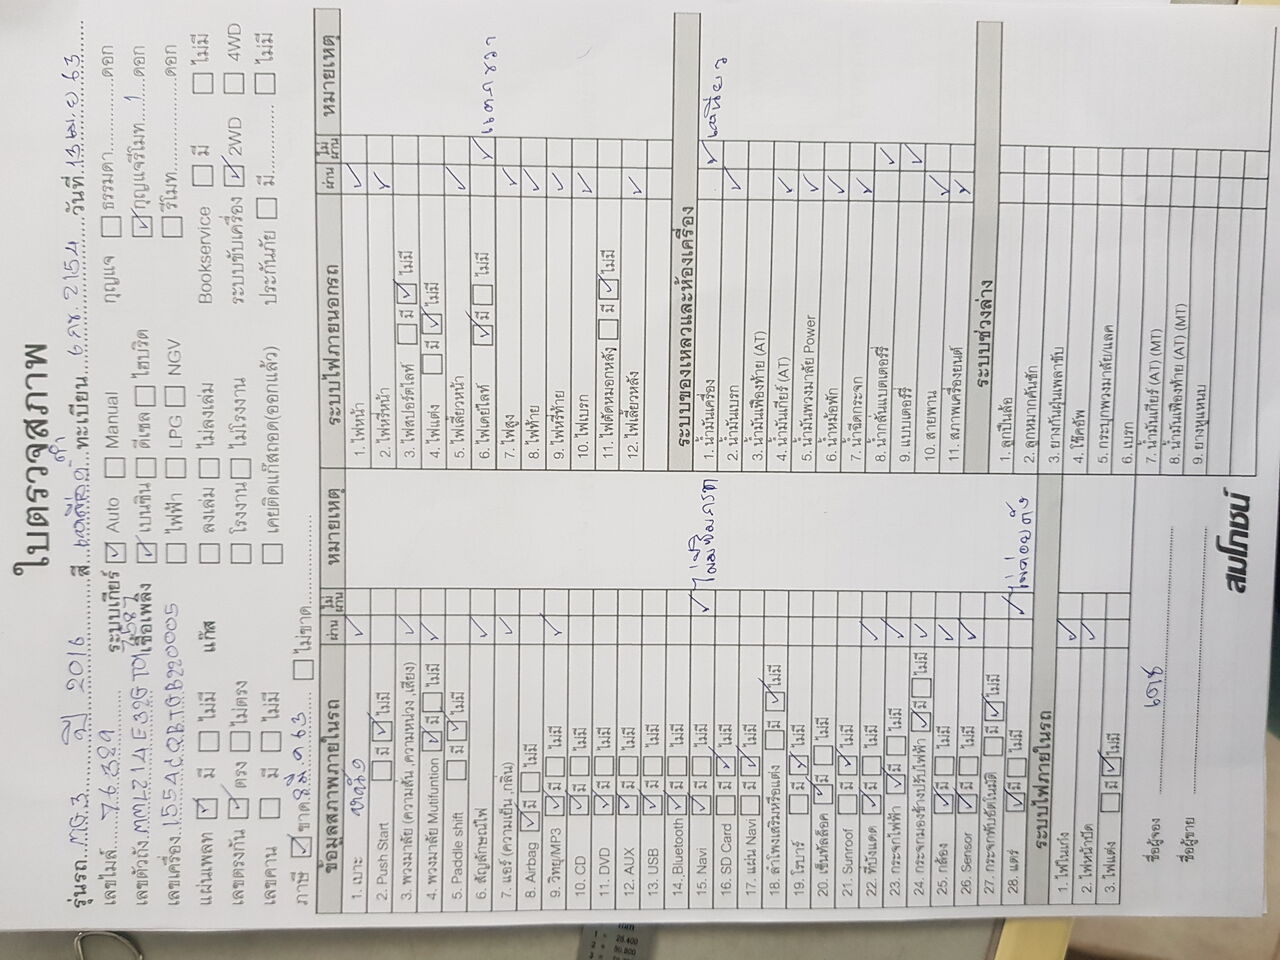 ใบตรวจสภาพ
รุ่นรถ MG 3 ปี 2016 สี เหลืองดำ ทะเบียน 6 กร 2154 วันที่ 13 เม.ย 63
เลขไมล์ 76,389 ระบบเกียร์ ☑ Auto ☐ Manual กุญแจ ☐ ธรรมดา ดอก
เลขตัวถัง เชื้อเพลิง ☑ เบนซิน ☐ ดีเซล ☐ ไฮบริด ☑ กุญแจรีโมท 1 ดอก
เลขเครื่อง ☐ ไฟฟ้า ☐ LPG ☐ NGV ☐ รีโมท ดอก
แผ่นเพลท ☑ มี ☐ ไม่มี แก๊ส ☐ ลงเล่ม ☐ ไม่ลงเล่ม Bookservice ☐ มี ☐ ไม่มี
เลขตรงกัน ☑ ตรง ☐ ไม่ตรง ☐ โรงงาน ☐ ไม่โรงงาน ระบบขับเครื่อง ☑ 2WD ☐ 4WD
เลขคาน ☐ มี ☐ ไม่มี ☐ เคยติดแก๊สถอด(ออกแล้ว) ประกันภัย ☐ มี ☐ ไม่มี
ภาษี ☑ ขาด ☐ ไม่ขาด
ข้อมูลสภาพภายในรถ ผ่าน ไม่ผ่าน หมายเหตุ
1. เบาะ หนัง ✓
2. Push Start ☐ มี ☑ ไม่มี
3. พวงมาลัย (ความสั่น ,ความหน่วง ,เสียง) ✓
4. พวงมาลัย Mutifuntion ☑ มี ☐ ไม่มี ✓
5. Paddle shift ☐ มี ☑ ไม่มี
6. สัญลักษณ์ไฟ ✓
7. แอร์ (ความเย็น ,กลิ่น) ✓
8. Airbag ☑ มี ☐ ไม่มี
9. วิทยุ/MP3 ☑ มี ☐ ไม่มี ✓
10. CD ☑ มี ☐ ไม่มี
11. DVD ☑ มี ☐ ไม่มี
12. AUX ☑ มี ☐ ไม่มี
13. USB ☑ มี ☐ ไม่มี
14. Bluetooth ☑ มี ☐ ไม่มี
15. Navi ☑ มี ☐ ไม่มี ✓
16. SD Card ☐ มี ☑ ไม่มี
17. แผ่น Navi ☐ มี ☑ ไม่มี
18. ลำโพงเสริมหรือแต่ง ☐ มี ☑ ไม่มี
19. โรบาร์ ☐ มี ☑ ไม่มี
20. เซ็นทัลล็อค ☑ มี ☐ ไม่มี
21. Sunroof ☐ มี ☑ ไม่มี
22. ที่บังแดด ☑ มี ☐ ไม่มี ✓
23. กระจกไฟฟ้า ☑ มี ☐ ไม่มี ✓
24. กระจกมองข้างปรับไฟฟ้า ☑ มี ☐ ไม่มี ✓
25. กล้อง ☑ มี ☐ ไม่มี ✓
26. Sensor ☑ มี ☐ ไม่มี ✓
27. กระจกพับอัตโนมัติ ☐ มี ☑ ไม่มี
28. แตร ☑ มี ☐ ไม่มี ✓ ไม่ค่อยดัง
ระบบไฟภายในรถ
1. ไฟในเก๋ง ✓
2. ไฟหน้าปัด ✓
3. ไฟแต่ง ☐ มี ☑ ไม่มี
ชื่อผู้จอง เดช
ชื่อผู้ขาย
ระบบไฟภายนอกรถ ผ่าน ไม่ผ่าน หมายเหตุ
1. ไฟหน้า ✓
2. ไฟหรี่หน้า ✓
3. ไฟสปอร์ตไลท์ ☐ มี ☑ ไม่มี
4. ไฟแต่ง ☐ มี ☑ ไม่มี
5. ไฟเลี้ยวหน้า ✓
6. ไฟเดย์ไลท์ ☑ มี ☐ ไม่มี ✓ แตกขวา
7. ไฟสูง ✓
8. ไฟท้าย ✓
9. ไฟหรี่ท้าย ✓
10. ไฟเบรก ✓
11. ไฟตัดหมอกหลัง ☐ มี ☑ ไม่มี
12. ไฟเลี้ยวหลัง ✓
ระบบของเหลวและห้องเครื่อง
1. น้ำมันเครื่อง ✓ เหนียว
2. น้ำมันเบรก ✓
3. น้ำมันเฟืองท้าย (AT)
4. น้ำมันเกียร์ (AT) ✓
5. น้ำมันพวงมาลัย Power ✓
6. น้ำหม้อพัก ✓
7. น้ำฉีดกระจก ✓
8. น้ำกลั่นแบตเตอรี่ ✓
9. แบบเตอรรี่ ✓
10. สายพาน ✓
11. สภาพเครื่องยนต์ ✓
ระบบช่วงล่าง
1. ลูกปืนล้อ
2. ลูกหมากคันชัก
3. ยางกันฝุ่นเพลาขับ
4. โช๊คอัพ
5. กระปุกพวงมาลัย/แลค
6. เบรก
7. น้ำมันเกียร์ (AT) (MT)
8. น้ำมันเฟืองท้าย (AT) (MT)
9. ยางหูแหนบ
สมโภชน์